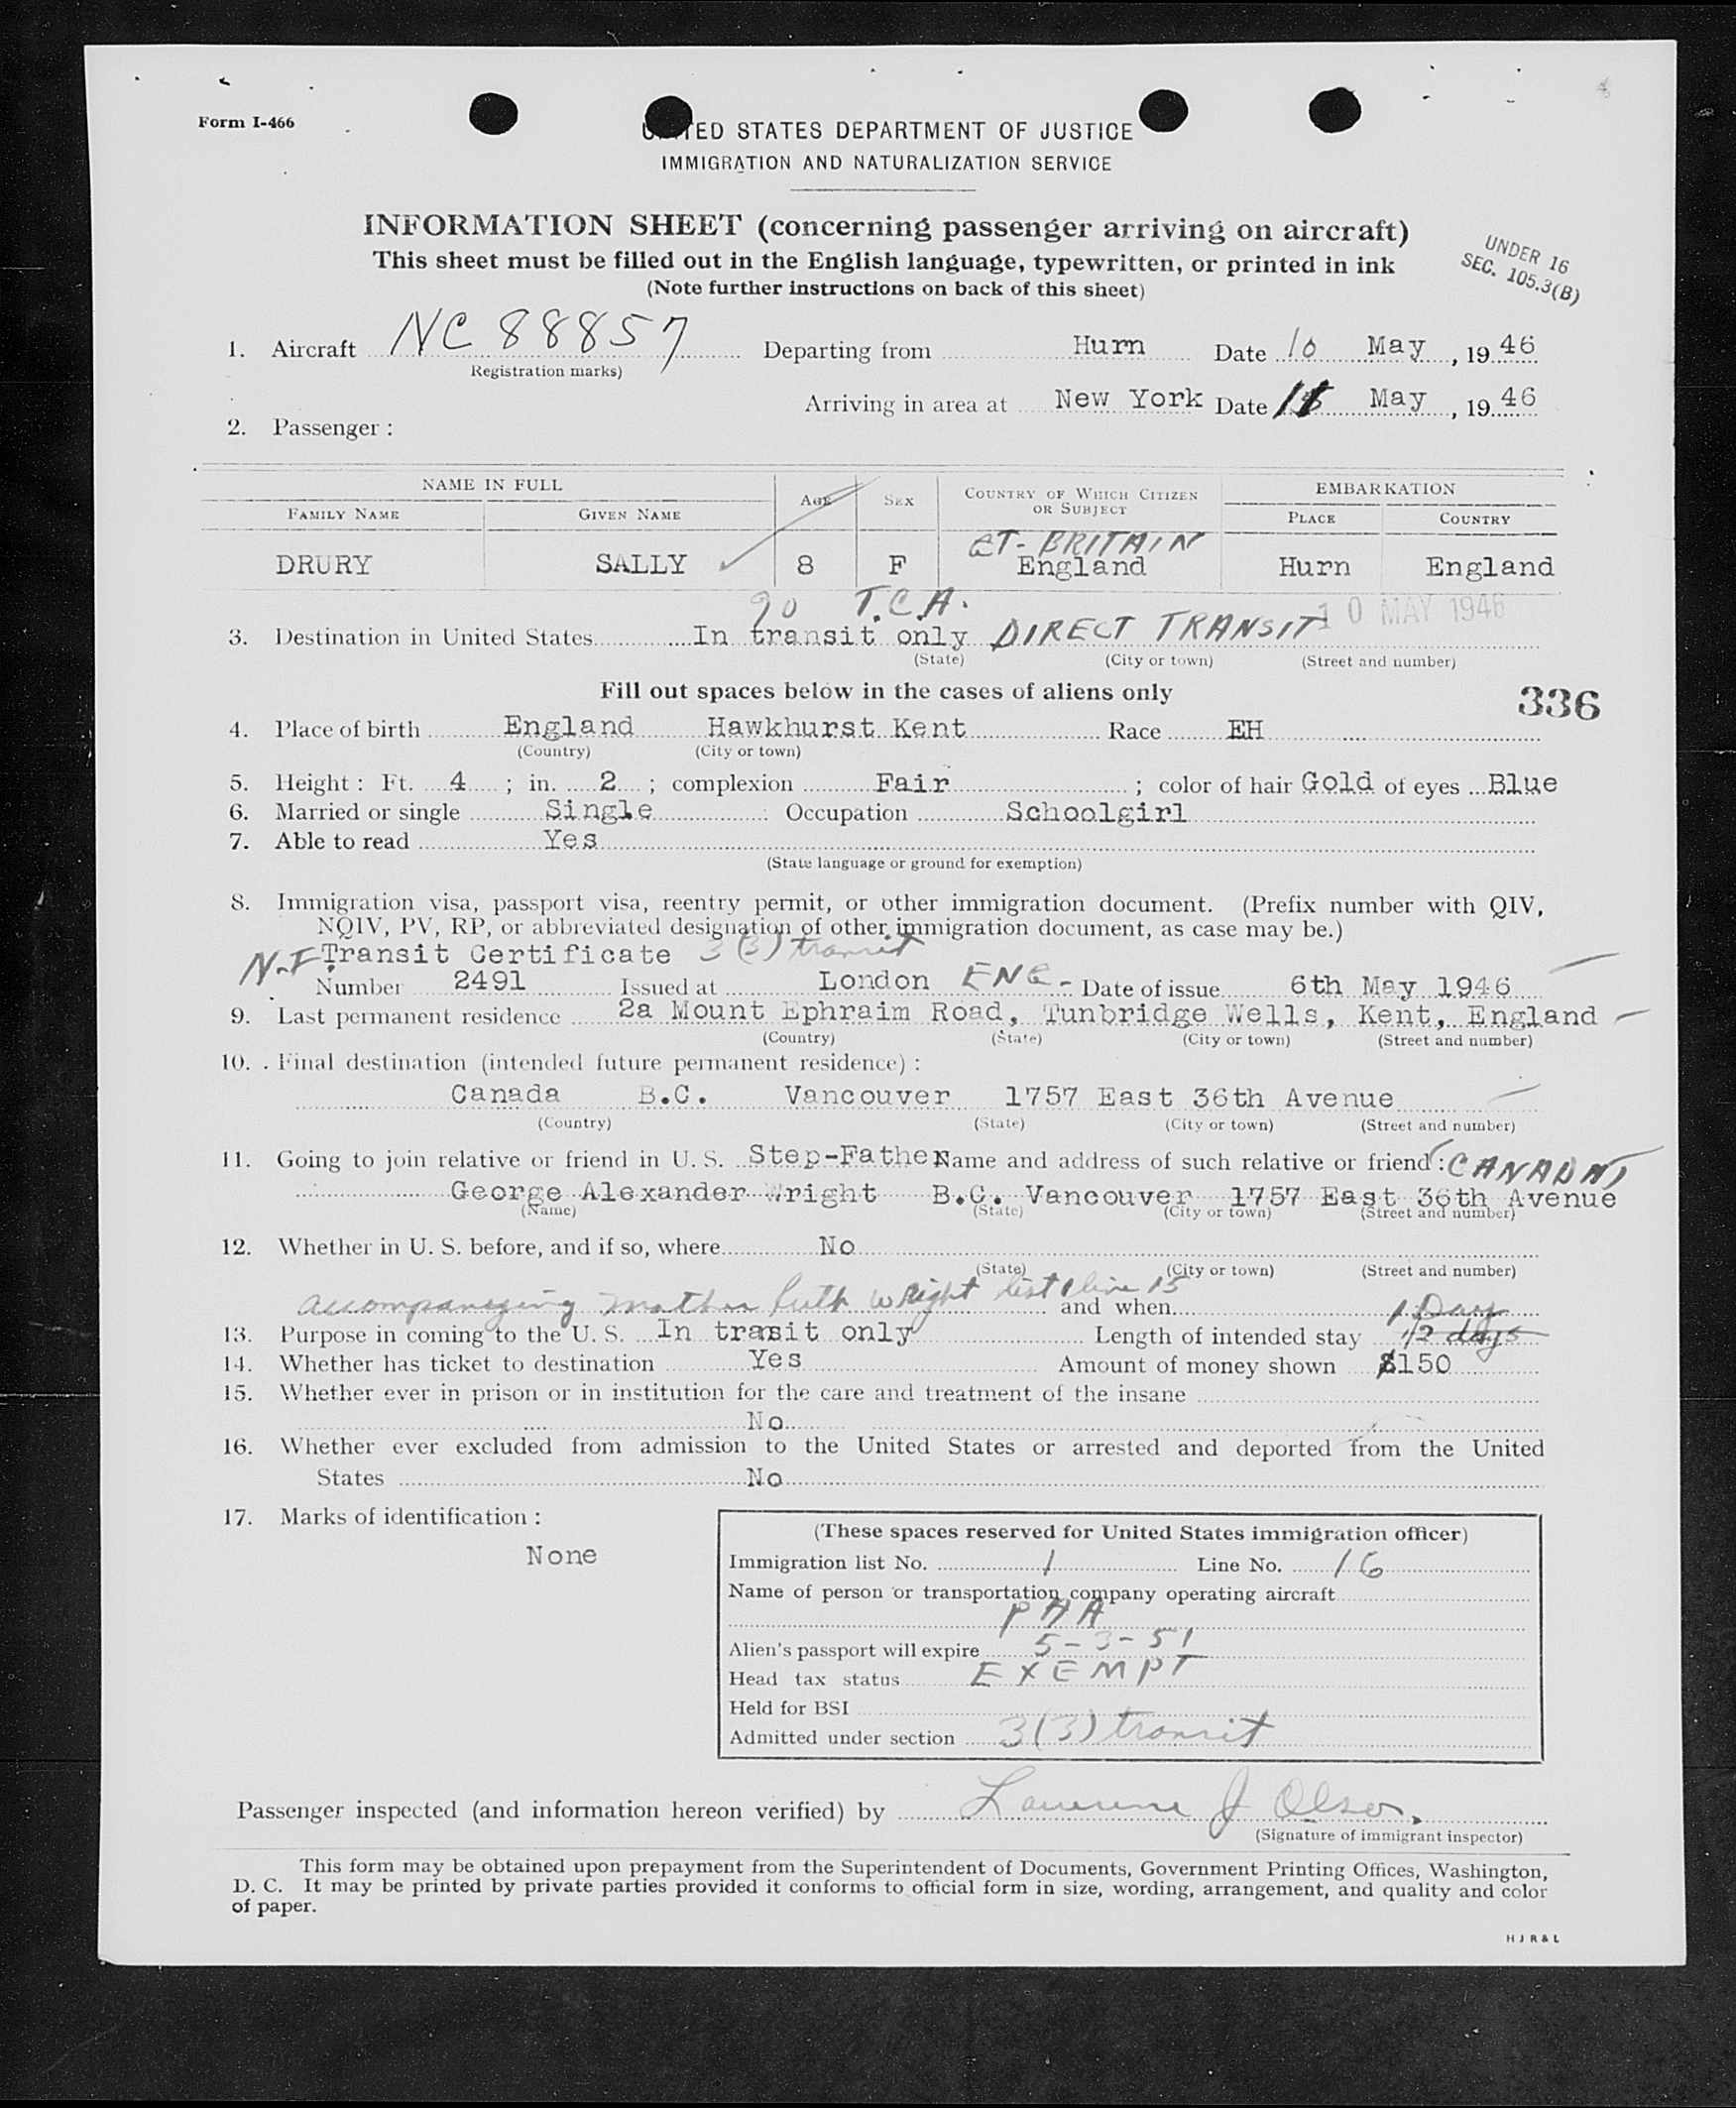 Form I-466
UNITED STATES DEPARTMENT OF JUSTICE
IMMIGRATION AND NATURALIZATION SERVICE
INFORMATION SHEET (concerning passenger arriving on aircraft)
This sheet must be filled out in the English language, typewritten, or printed in ink
(Note further instructions on back of this sheet)
UNDER 16
SEC. 105.3(B)
1. Aircraft NC 88857 Departing from Hurn Date 10 May, 19 46
(Registration marks)
Arriving in area at New York Date 11 May, 19 46
2. Passenger:
NAME IN FULL AGE SEX COUNTRY OF WHICH CITIZEN OR SUBJECT EMBARKATION
FAMILY NAME GIVEN NAME PLACE COUNTRY
GT-BRITAIN
DRURY SALLY 8 F England Hurn England
90 T.C.A. 10 MAY 1946
3. Destination in United States In transit only DIRECT TRANSIT
(State) (City or town) (Street and number)
Fill out spaces below in the cases of aliens only
336
4. Place of birth England Hawkhurst Kent Race EH
(Country) (City or town)
5. Height: Ft. 4; in. 2; complexion Fair; color of hair Gold of eyes Blue
6. Married or single Single Occupation Schoolgirl
7. Able to read Yes
(State language or ground for exemption)
8. Immigration visa, passport visa, reentry permit, or other immigration document. (Prefix number with QIV,
NQIV, PV, RP, or abbreviated designation of other immigration document, as case may be.)
N.F Transit Certificate 3(3) transit
Number 2491 Issued at London ENG- Date of issue 6th May 1946
9. Last permanent residence 2a Mount Ephraim Road, Tunbridge Wells, Kent, England
(Country) (State) (City or town) (Street and number)
10. Final destination (intended future permanent residence):
Canada B.C. Vancouver 1757 East 36th Avenue
(Country) (State) (City or town) (Street and number)
11. Going to join relative or friend in U.S. Step-Father Name and address of such relative or friend: CANADA
George Alexander Wright B.C. Vancouver 1757 East 36th Avenue
(Name) (State) (City or town) (Street and number)
12. Whether in U. S. before, and if so, where No
(State) (City or town) (Street and number)
accompanying mother Ruth Wright list 1 line 15 and when 1 Day
13. Purpose in coming to the U. S. In transit only Length of intended stay 1/2 days
14. Whether has ticket to destination Yes Amount of money shown $150
15. Whether ever in prison or in institution for the care and treatment of the insane
No
16. Whether ever excluded from admission to the United States or arrested and deported from the United
States No
17. Marks of identification:
None
(These spaces reserved for United States immigration officer)
Immigration list No. 1 Line No. 16
Name of person or transportation company operating aircraft
PAA
Alien's passport will expire 5-3-51
Head tax status EXEMPT
Held for BSI
Admitted under section 3(3) transit
Passenger inspected (and information hereon verified) by Lawrence J Olson
(Signature of immigrant inspector)
This form may be obtained upon prepayment from the Superintendent of Documents, Government Printing Offices, Washington,
D. C. It may be printed by private parties provided it conforms to official form in size, wording, arrangement, and quality and color
of paper.
H J R & L